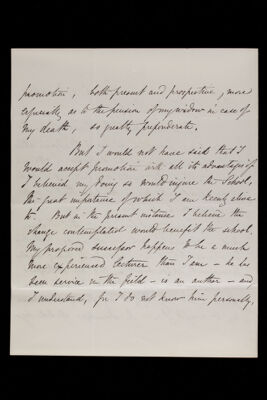 promotion, both present and prospective, more
especially as to the pension of my widow in case of
my death, so greatly preponderate.
But I would not have said that I
would accept promotion with all its advantages if
I believed my doing so would injure the School,
the great importance of which I am keenly alive
to. But in the present instance I believe the
change contemplated would benefit the school.
My proposed successor happens to be a much
more experienced lecturer than I am - he has
seen service in the field - is an author - and
I understand, for I do not know him personally,